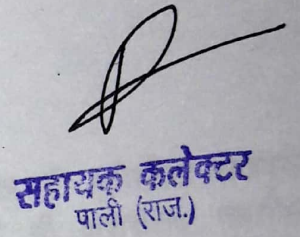 सहायक कलेक्टर
पाली (राज.)